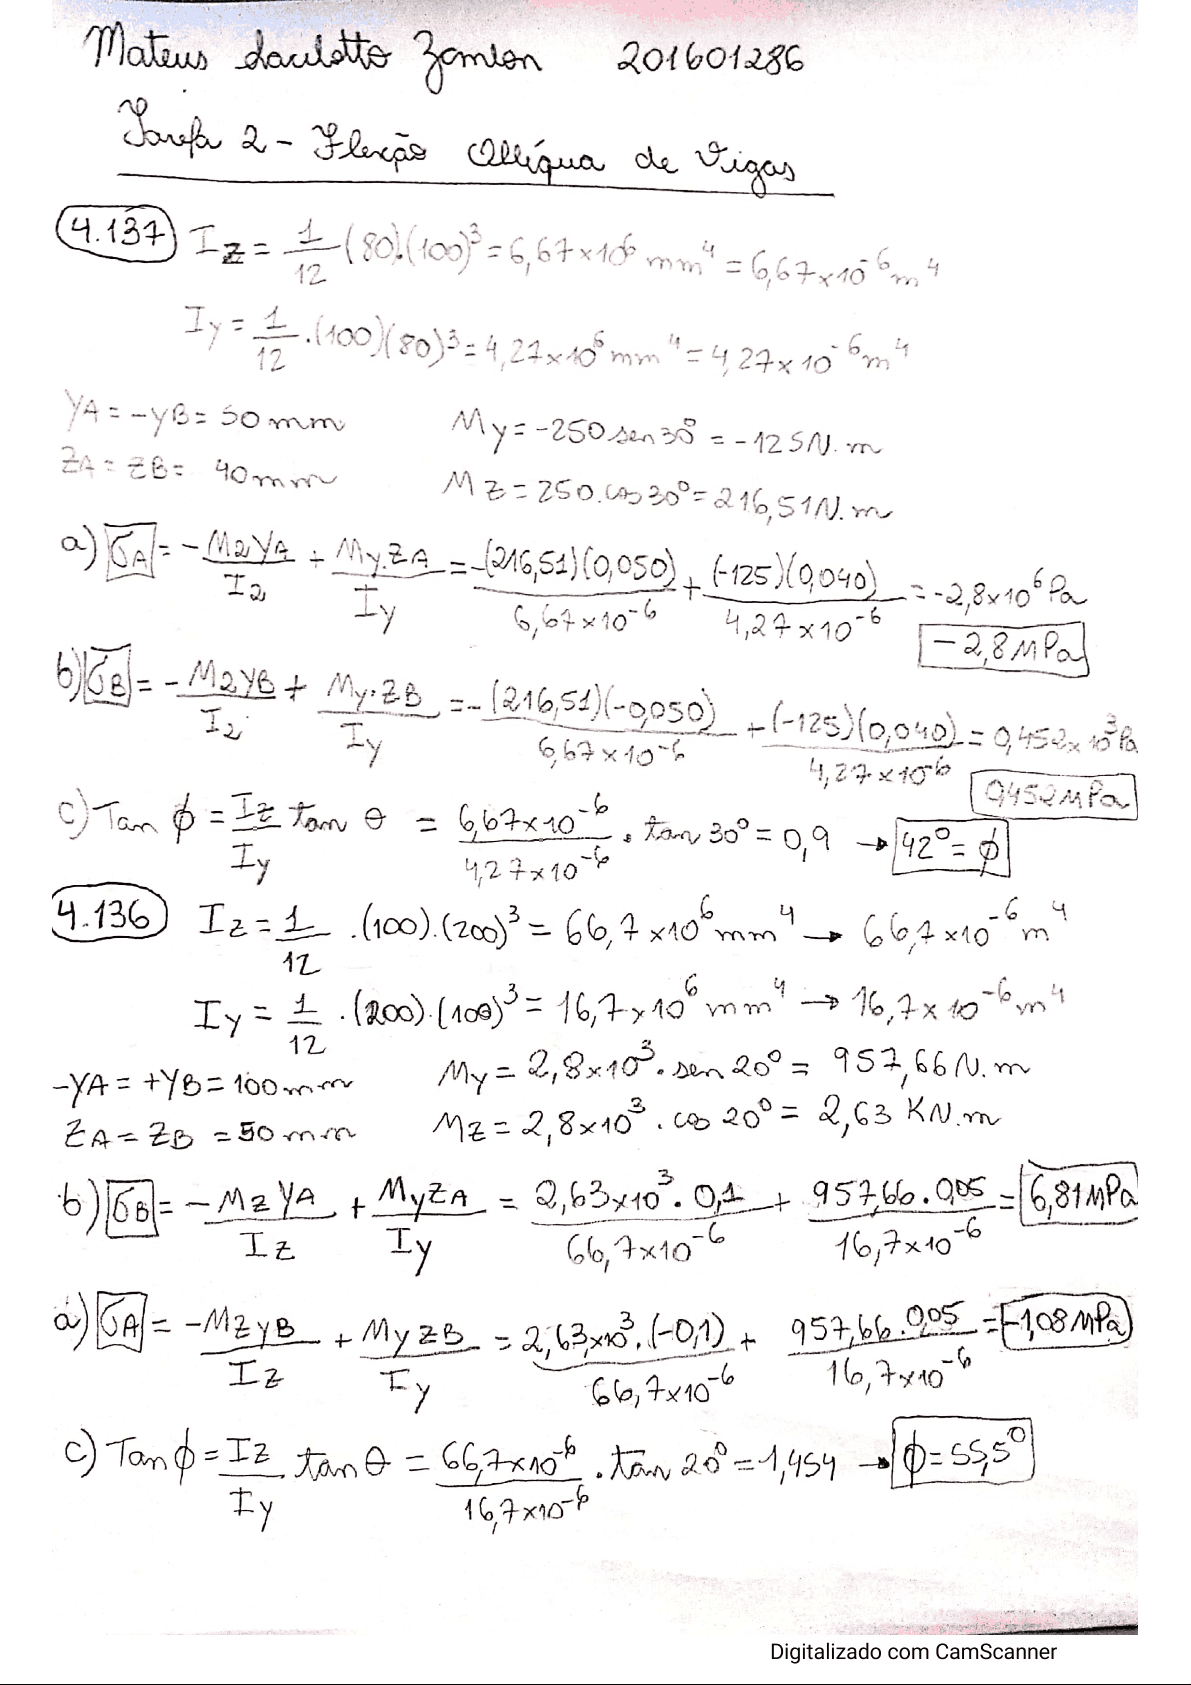 Mateus Zamlon 201601286
Tarefa 2 - Flexão Oblíqua de Vigas
4.137 Iz = 1/12 (80).(100)³ = 6,67x10⁶ mm⁴ = 6,67x10⁻⁶ m⁴
Iy = 1/12 .(100)(80)³ = 4,27x10⁶ mm⁴ = 4,27x10⁻⁶ m⁴
YA = -YB = 50 mm My = -250 sen 30° = -125 N.m
ZA = ZB = 40 mm Mz = 250.cos 30° = 216,51 N.m
a) σA = - MzYA/Iz + My.ZA/Iy = -(216,51)(0,050)/6,67x10⁻⁶ + (-125)(0,040)/4,27x10⁻⁶ = -2,8x10⁶ Pa
-2,8 MPa
b) σB = - MzYB/Iz + My.ZB/Iy = -(216,51)(-0,050)/6,67x10⁻⁶ + (-125)(0,040)/4,27x10⁻⁶ = 0,452x10³ Pa
0,452 MPa
c) Tan ϕ = Iz/Iy tan θ = 6,67x10⁻⁶/4,27x10⁻⁶ . tan 30° = 0,9 → 42° = ϕ
4.136 Iz = 1/12 .(100).(200)³ = 66,7x10⁶ mm⁴ → 66,7x10⁻⁶ m⁴
Iy = 1/12 .(200).(100)³ = 16,7x10⁶ mm⁴ → 16,7x10⁻⁶ m⁴
-YA = +YB = 100 mm My = 2,8x10³. sen 20° = 957,66 N.m
ZA = ZB = 50 mm Mz = 2,8x10³. cos 20° = 2,63 KN.m
b) σB = - MzYA/Iz + MyZA/Iy = 2,63x10³. 0,1/66,7x10⁻⁶ + 957,66.0,05/16,7x10⁻⁶ = 6,81 MPa
a) σA = -MzYB/Iz + MyZB/Iy = 2,63x10³.(-0,1)/66,7x10⁻⁶ + 957,66.0,05/16,7x10⁻⁶ = -1,08 MPa
c) Tan ϕ = Iz/Iy tan θ = 66,7x10⁻⁶/16,7x10⁻⁶ . tan 20° = 1,454 → ϕ = 55,5°
Digitalizado com CamScanner